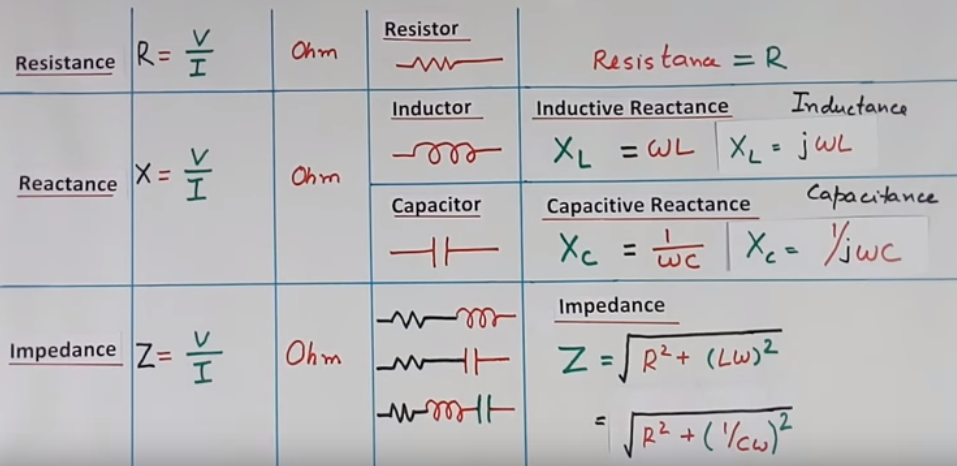 Resistance R = V/I Ohm Resistor Resistance = R
Reactance X = V/I Ohm
Inductor Inductive Reactance Inductance
X_L = ωL X_L = jωL
Capacitor Capacitive Reactance Capacitance
X_C = 1/ωC X_C = 1/jωC
Impedance Z = V/I Ohm Impedance
Z = √R² + (Lω)²
= √R² + (1/Cω)²